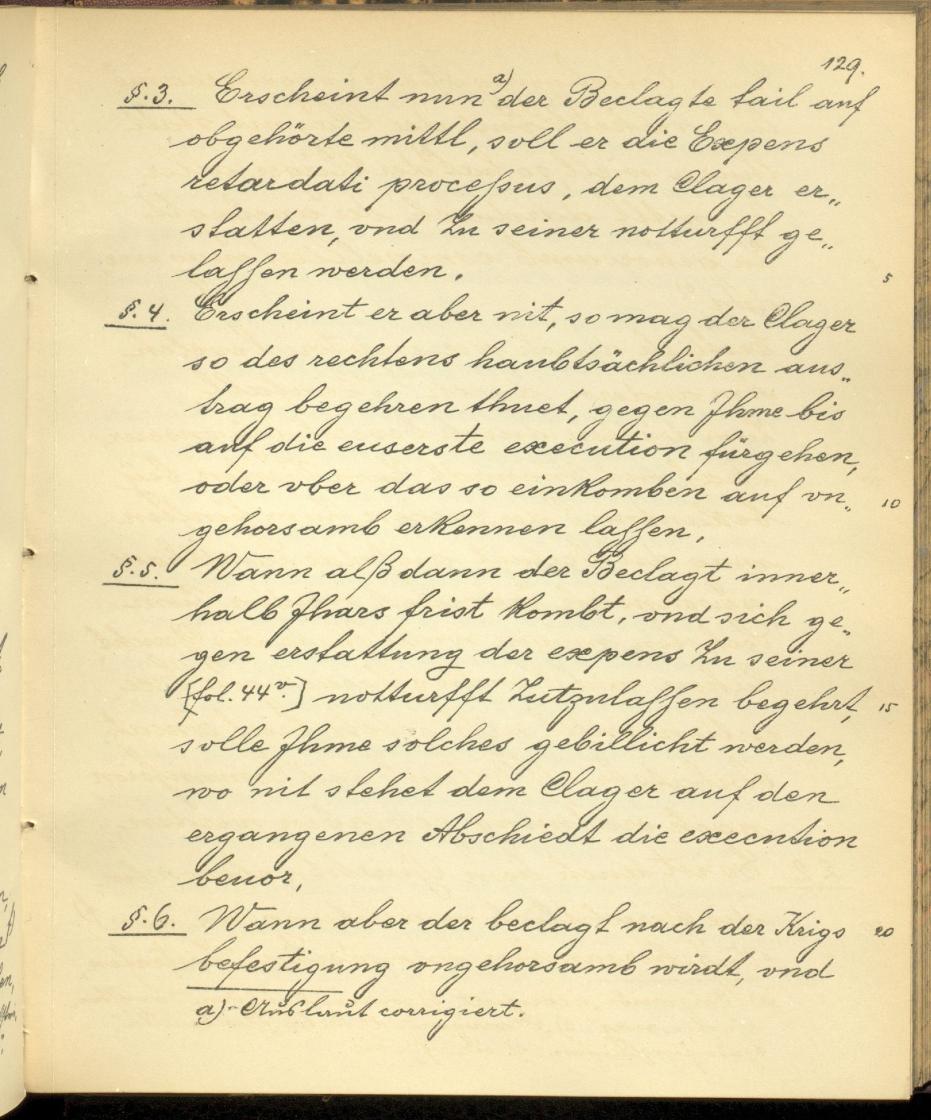 129.
§. 3. Erscheint nun a) der Beclagte tail auf
obgehörte mittl, soll er die Expens
retardati processus, dem Clager er„
statten, vnd Zu seiner notturfft ge„
lassen werden.
5
§. 4. Erscheint er aber nit, so mag der Clager
so des rechtens haubtsächlichen aus„
trag begehren thuet, gegen Jhme bis
auf die euserste execution fürgehen,
oder vber das so einkomben auf vn„ 10
gehorsamb erkennen lassen,
§. 5. Wann alß dann der Beclagt inner„
halb Jhars frist kombt, vnd sich ge„
gen erstattung der expens Zu seiner
[fol. 44v.] notturfft Zutzulassen begehrt, 15
solle Jhme solches gebillicht werden,
wo nit stehet dem Clager auf den
ergangenen Abschiedt die execution
beuor,
§. 6. Wann aber der beclagt nach der Krigs 20
befestigung vngehorsamb wirdt, vnd
a) Auslaut corrigiert.